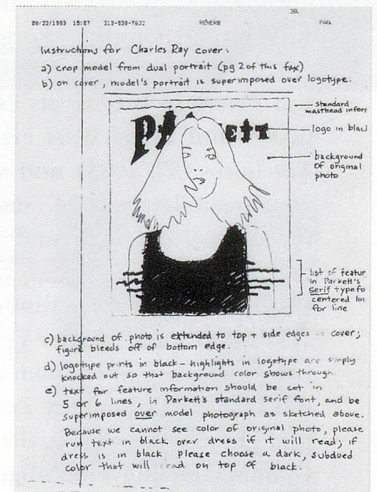 06/22/1993 15:07 213-938-7632 REVERB PAG.
Instructions for Charles Ray cover:
a) crop model from dual portrait (pg 2 of this fax)
b) on cover, model's portrait is superimposed over logotype.
standard
masthead infor
PARKETT
logo in black
background
of original
photo
list of featur
in Parkett's
serif type fo
centered lin
for line
c) background of photo is extended to top + side edges cover;
figure bleeds off of bottom edge.
d) logotype prints in black - highlights in logotype are simply
knocked out so that background color shows through.
e) text for feature information should be set in
5 or 6 lines, in Parkett's standard serif font, and be
superimposed over model photograph as sketched above.
Because we cannot see color of original photo, please
run text in black over dress if it will read; if
dress is in black please choose a dark, subdued
color that will read on top of black.